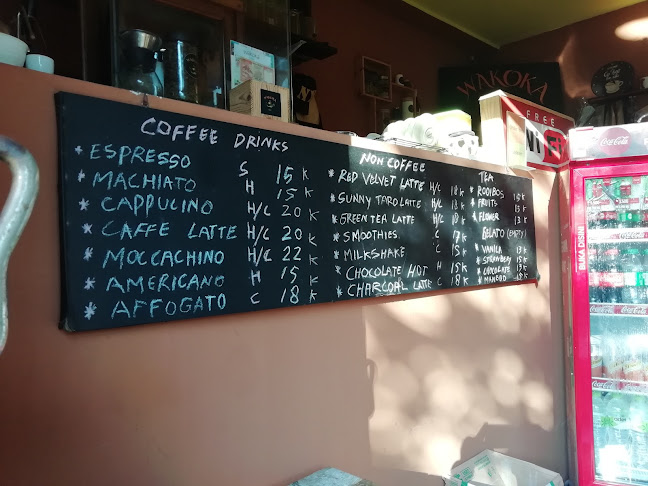 COFFEE DRINKS
* ESPRESSO S 15 K
* MACHIATO H 15 K
* CAPPUCINO H/C 20 K
* CAFFE LATTE H/C 20 K
* MOCCACHINO H/C 22 K
* AMERICANO H 15 K
* AFFOGATO C 18 K
NON COFFEE
* RED VELVET LATTE H/C 18 K
* SUNNY TARO LATTE H/C 18 K
* GREEN TEA LATTE H/C 18 K
* SMOOTHIES C 17 K
* MILKSHAKE C 15 K
* CHOCOLATE HOT H 15 K
* CHARCOAL LATTE C 18 K
TEA
* ROOIBOS 13 K
* FRUITS 13 K
* FLOWER 13 K
GELATO (EMPTY)
* VANILA 13 K
* STRAWBERY 13 K
* CHOCOLATE 13 K
* MANGGO 13 K
WAKOKA
FREE
Coca-Cola
BUKA DISINI
Coca-Cola
Coca-Cola
Coca-Cola